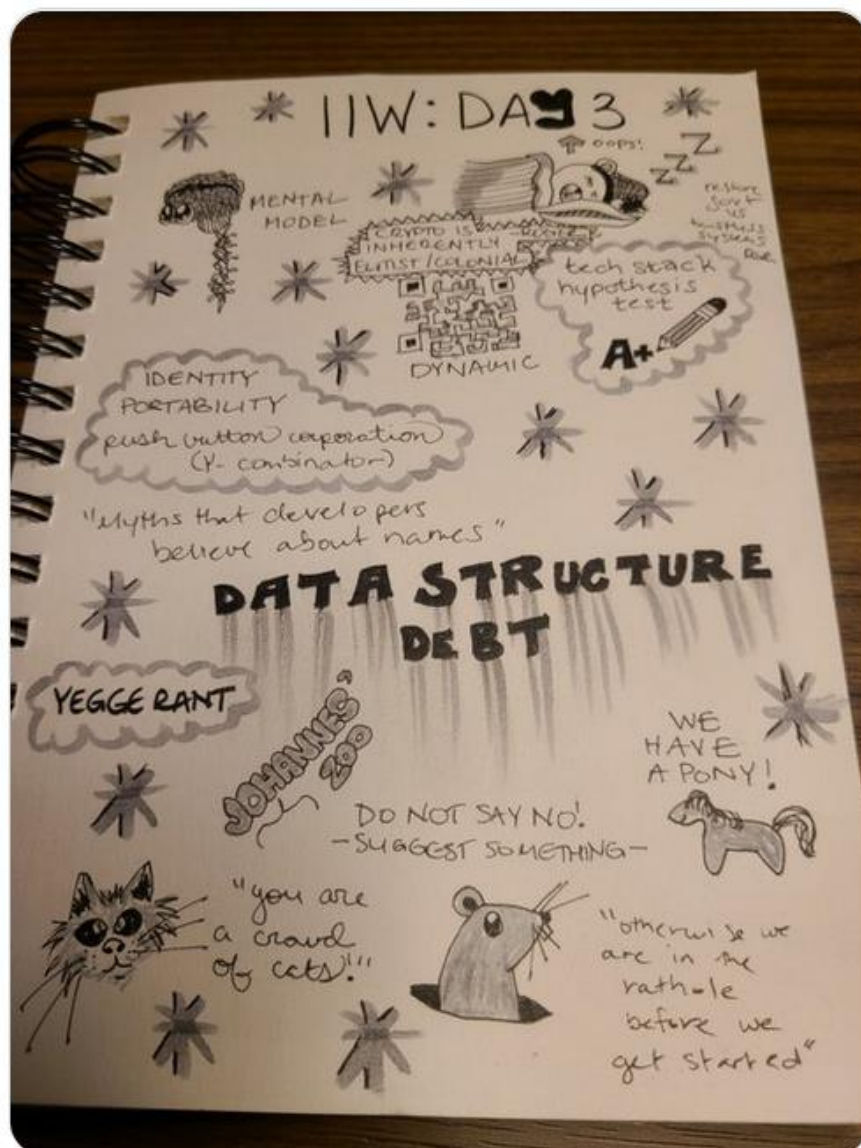 IIW: DAY 3
OOPS!
Z Z Z
MENTAL
MODEL
CRYPTO IS
INHERENTLY
ELITIST/COLONIAL
restore
us
systems
tech stack
hypothesis
test
A+
DYNAMIC
IDENTITY
PORTABILITY
push button corporation
(Y-combinator)
"Myths that developers
believe about names"
DATA STRUCTURE
DEBT
YEGGE RANT
JOHANNES'
ZOO
WE
HAVE
A PONY!
DO NOT SAY NO!
-SUGGEST SOMETHING-
"you are
a crowd
of cats!"
"otherwise we
are in the
rathole
before we
get started"